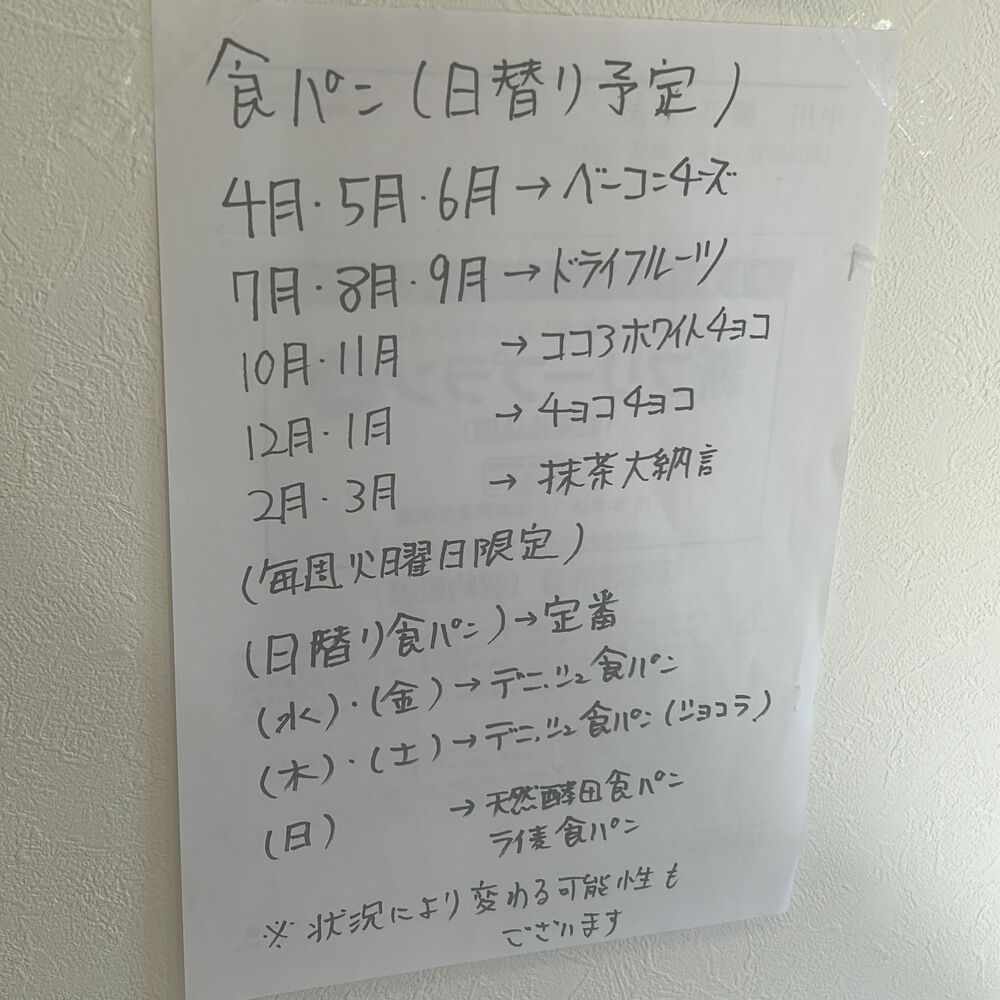 食パン(日替り予定)
4月・5月・6月→ベーコンチーズ
7月・8月・9月→ドライフルーツ
10月・11月 →ココ3ホワイトチョコ
12月・1月 →チョコチョコ
2月・3月 →抹茶大納言
(毎週火曜日限定)
(日替り食パン)→定番
(水)・(金)→デニッシュ食パン
(木)・(土)→デニッシュ食パン(ショコラ)
(日) →天然酵田食パン
ライ麦食パン
※状況により変わる可能性も
ございます